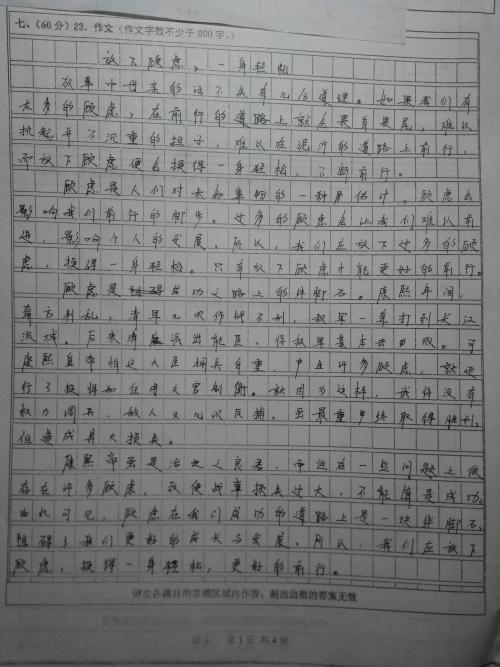 七、(60分)23. 作文(作文字数不少于800字。)
放下顾虑,一身轻松
故事中母亲的话不无有几分道理。如果我们有
太多的顾虑,在前行的道路上就会畏首畏尾,难以
挑起并不沉重的担子,难以在泥泞的道路上前行,
而放下顾虑便会换得一身轻松,不断前行。
顾虑是人们对未知事物的一种估计,顾虑会
影响我们前行的脚步。过多的顾虑会让我们难以前
进,影响个人的发展。所以,我们应放下过多的顾
虑,换得一身轻松。只有放下顾虑才能更好的前行。
顾虑是成功之路上的绊脚石。康熙年间,
有方叛乱,清军几次作战不利,敌军一车打到长江
流域。后来清庭派出能臣,将敌军基本击败。可
康熙皇帝怕这大臣拥兵自重,产生许多顾虑,就进
行了换将和任用文官制衡。就因为这样,武将没有
权力调兵,敌人又几次反捕,虽最重多终取得胜利,
但造成具大损失。
康熙帝虽是治世之良君,而但在一些问题上仍
存在许多顾虑,致使战事损兵过大,不能算是成功。
由此可见,顾虑在我们成功的道路上是一块绊脚石,
阻碍了我们更好的成长与发展。所以,我们应放下
顾虑,换得一身轻松,更好的前行。
请在各题目的答题区域内作答,超出边框的答案无效
语文 第3页 共4页